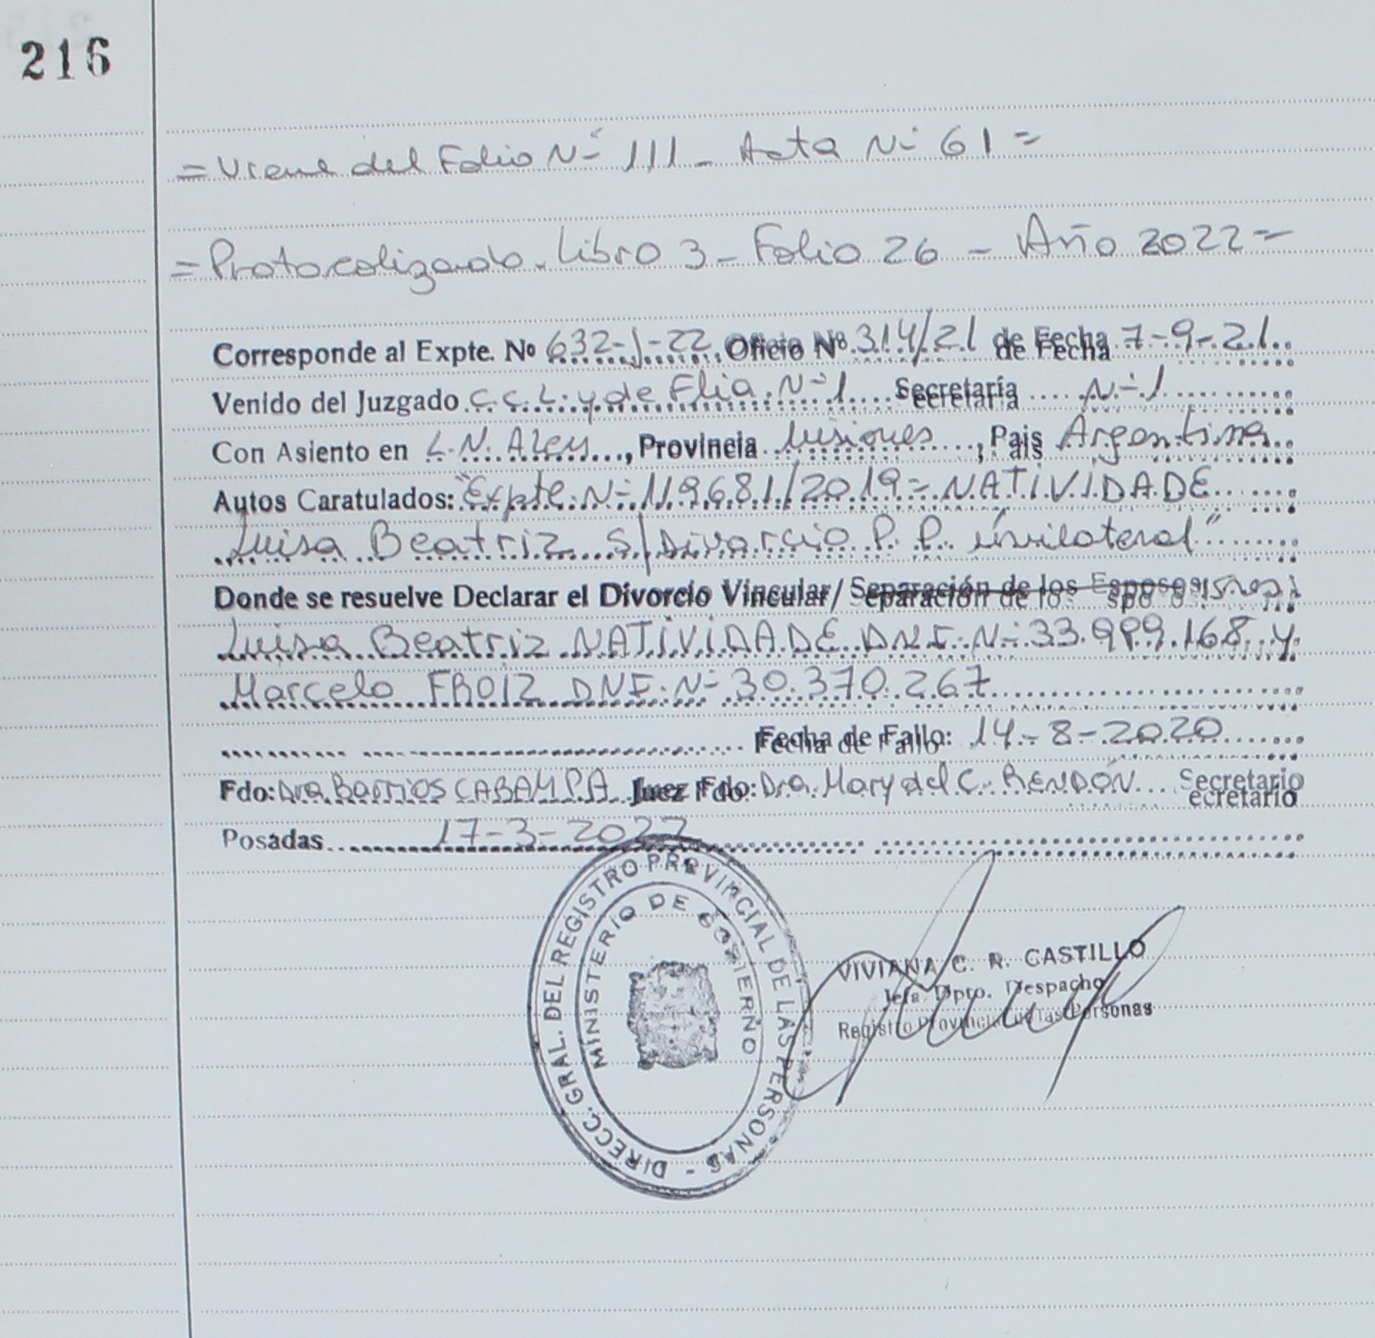 216
= Viene del Folio Nº 111 - Acta Nº 61 =
= Protocolizado. Libro 3 - Folio 26 - Año 2022 =
Corresponde al Expte. Nº 632-J-22, Oficio Nº 314/21 de Fecha 7-9-21
Venido del Juzgado C.C.L. y de Flia. Nº 1 Secretaría Nº 1
Con Asiento en L.N. Alem, Provincia Misiones, Pais Argentina
Autos Caratulados: "Expte. Nº 119681/2019 = NATIVIDADE
Luisa Beatriz S/Divorcio P.P. unilateral"
Donde se resuelve Declarar el Divorcio Vincular/ Separación de los Esposos
Luisa Beatriz NATIVIDADE DNI. Nº 33.989.168 y
Marcelo FROIZ DNI. Nº 30.370.267
Fecha de Fallo: 14-8-2020
Fdo: Dra Barrios CARAMPA Juez Fdo: Dra. Mary del C. RENDÓN Secretario
Posadas 17-3-2022
DIRECC. GRAL. DEL REGISTRO PROVINCIAL DE LAS PERSONAS -
MINISTERIO DE GOBIERNO
VIVIANA C. R. CASTILLO
Jefa. Dpto. Despacho
Registro Provincial de las Personas